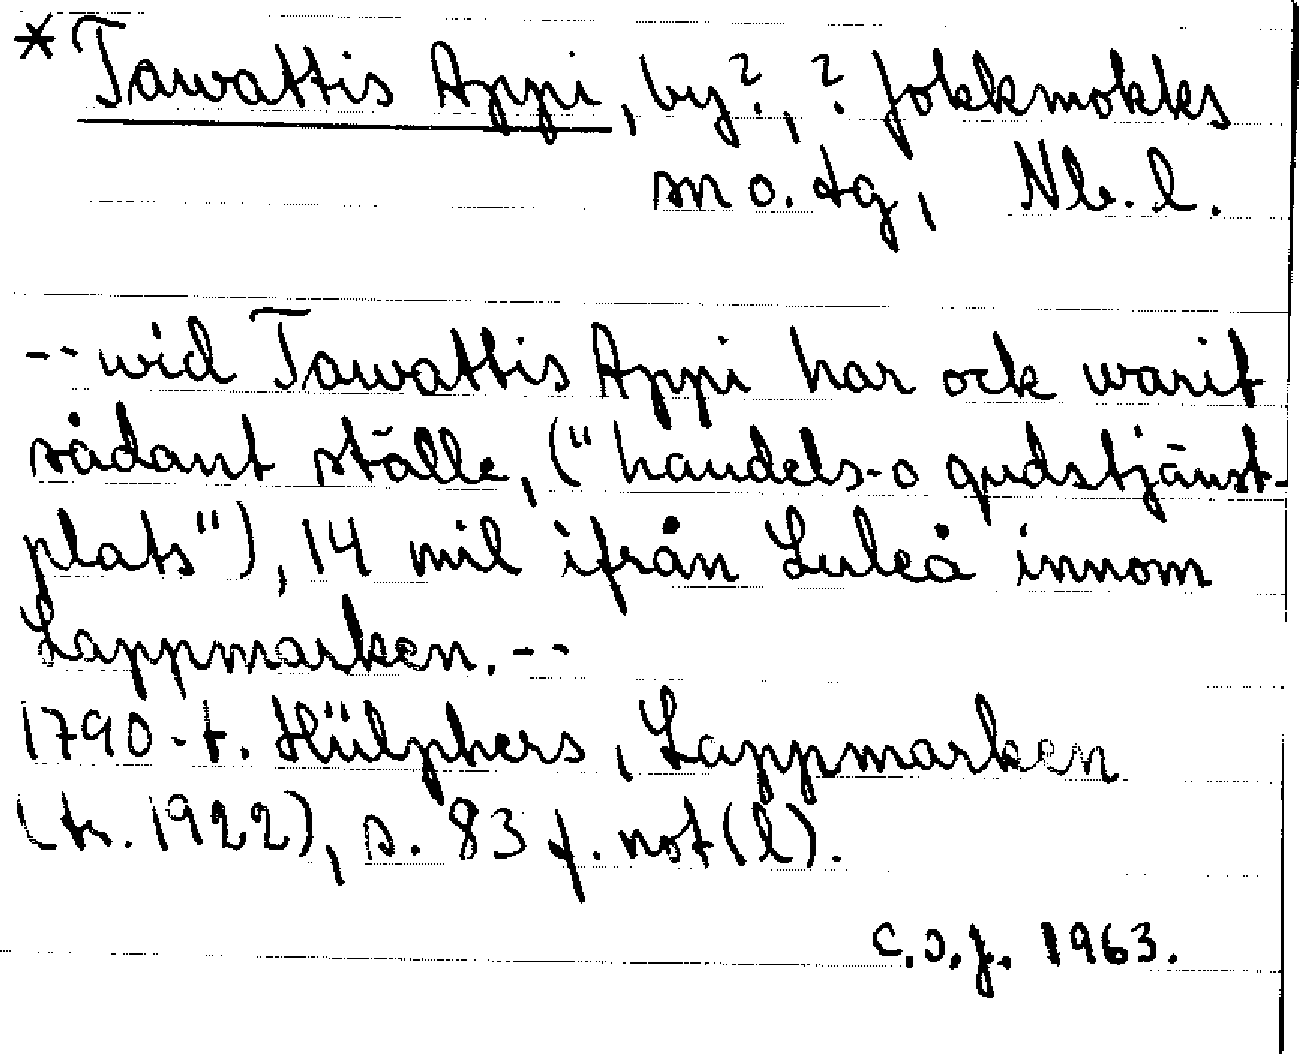 *Tawattis Appi, by?, ? Jokkmokks
sn o. tg, Nb. l.
-- wid Tawattis Appi har ock warit
sådant ställe, ("handels-o gudstjänst-
plats"), 14 mil ifrån Luleå innom
Lappmarken. --
1790-t. Hülphers, Lappmarken
(tr. 1922), s. 83 f. not (l).
C.O.J. 1963.